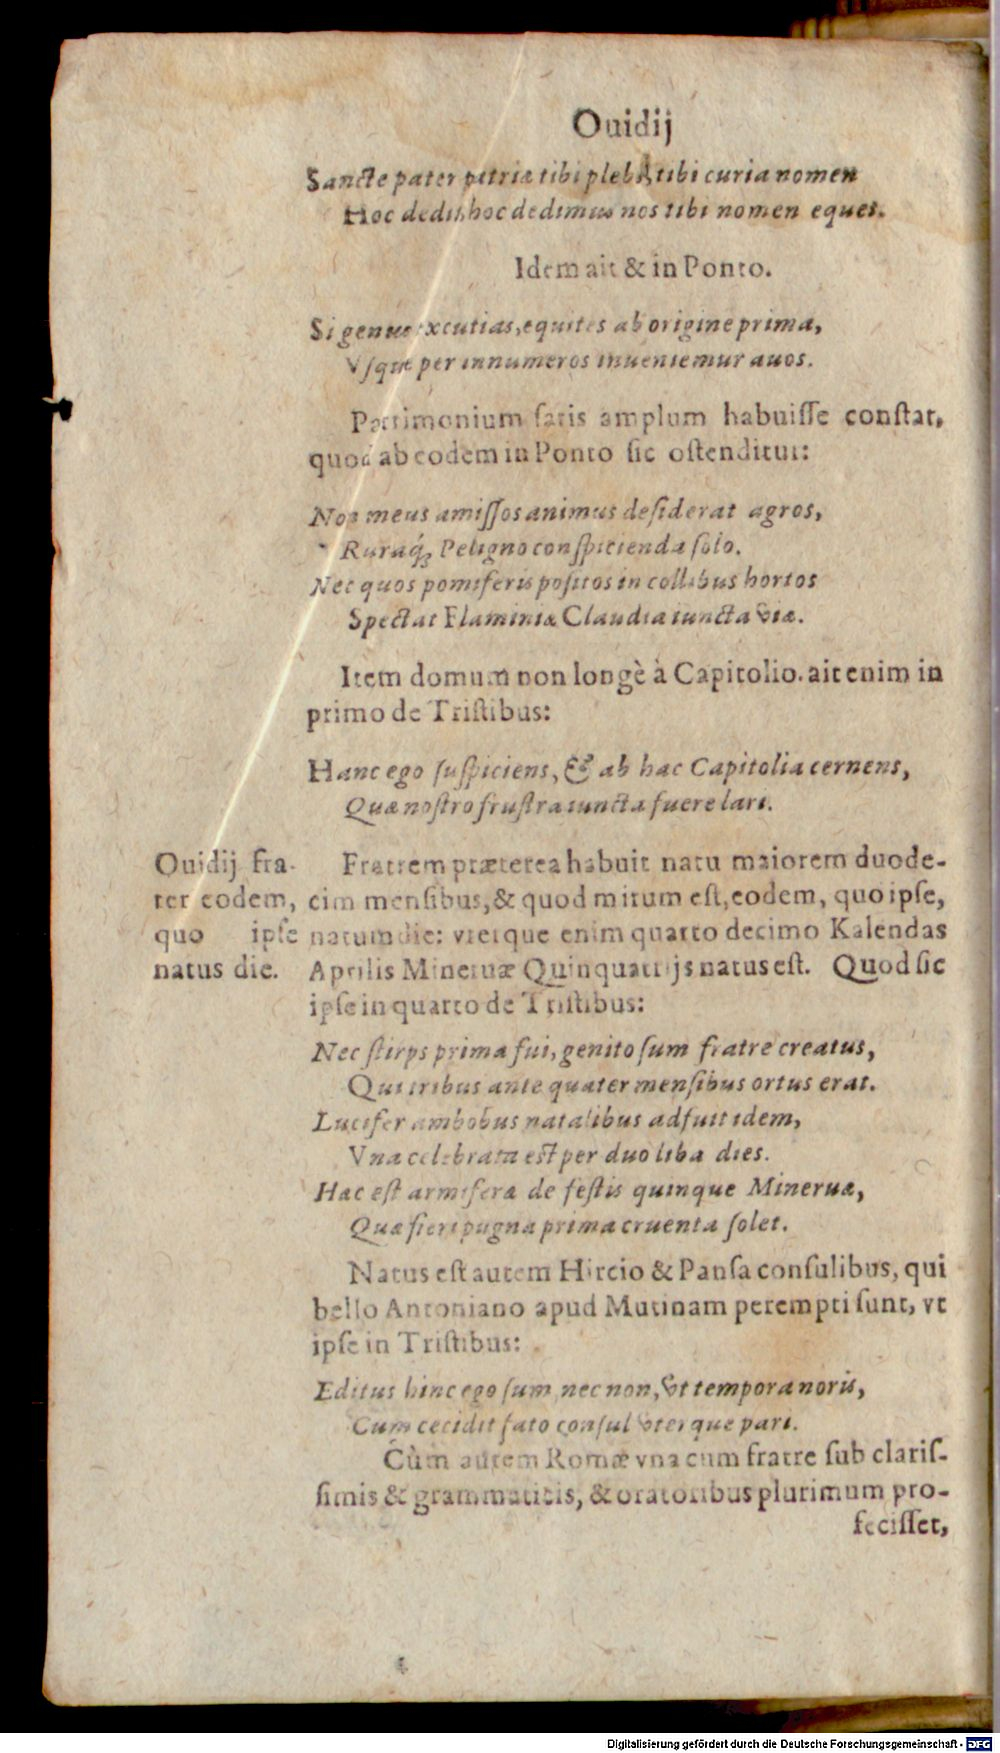 Ouidij
Sancte pater patriæ tibi plebs, tibi curia nomen
Hoc dedit, hoc dedimus nos tibi nomen eques.
Idem ait & in Ponto.
Si genus excutias, equites ab origine prima,
Vsque per innumeros inueniemur auos.
Patrimonium satis amplum habuisse constat,
quod ab eodem in Ponto sic ostenditur:
Non meus amissos animus desiderat agros,
Ruraq́; Peligno conspicienda solo.
Nec quos pomiferis positos in collibus hortos
Spectat Flaminiæ Claudia iuncta viæ.
Item domum non longè à Capitolio. ait enim in
primo de Tristibus:
Hanc ego suspiciens, & ab hac Capitolia cernens,
Quæ nostro frustra iuncta fuere lari.
Ouidij fra-
ter eodem,
quo ipse
natus die.
Fratrem præterea habuit natu maiorem duode-
cim mensibus, & quod mirum est, eodem, quo ipse,
natum die: vterque enim quarto decimo Kalendas
Aprilis Mineruæ Quinquatrijs natus est. Quod sic
ipse in quarto de Tristibus:
Nec stirps prima fui, genito sum fratre creatus,
Qui tribus ante quater mensibus ortus erat.
Lucifer ambobus natalibus adfuit idem,
Vna celebrata est per duo liba dies.
Hac est armiferæ de festis quinque Mineruæ,
Quæ fieri pugna prima cruenta solet.
Natus est autem Hircio & Pansa consulibus, qui
bello Antoniano apud Mutinam perempti sunt, vt
ipse in Tristibus:
Editus hinc ego sum, nec non, vt tempora noris,
Cum cecidit fato consul vterque pari.
Cùm autem Romæ vna cum fratre sub claris-
simis & grammaticis, & oratoribus plurimum pro-
fecisset,
Digitalisierung gefördert durch die Deutsche Forschungsgemeinschaft - DFG